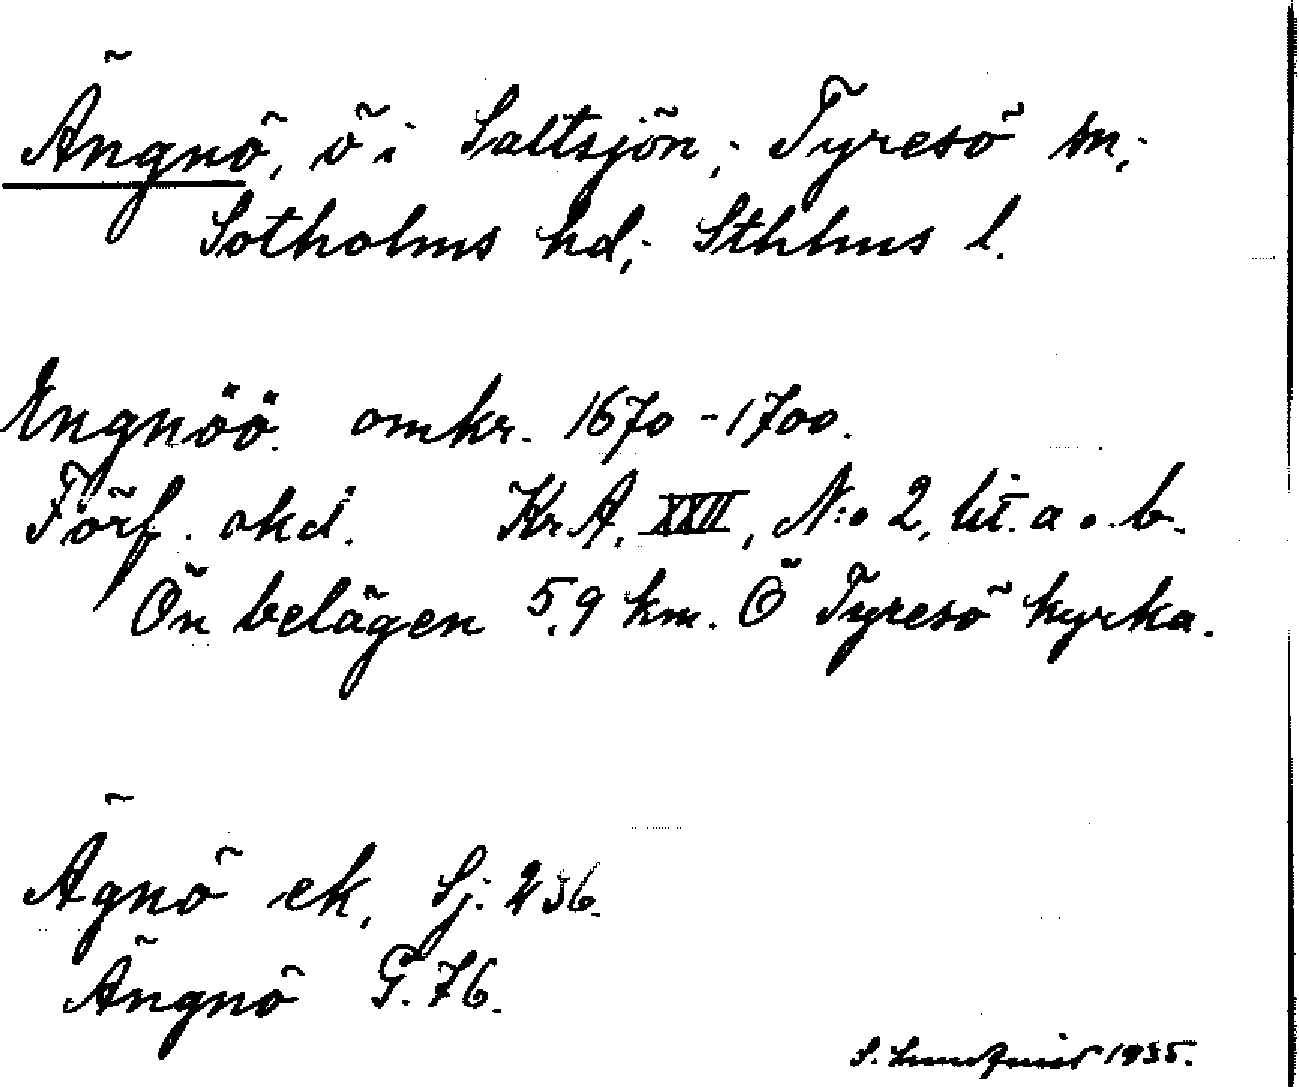 Ängnö, ö i Saltsjön; Tyresö sn;
Sotholms hd; Sthlms l.
Engnöö. omkr. 1670-1700.
Förf. okd. Kr.A. XXII, N:o 2, lit. a o. b.
Ön belägen 5,9 km. Ö Tyresö kyrka.
Ägnö ek. Sj: 236.
Ängnö G. 76.
S. Lundquist 1935.